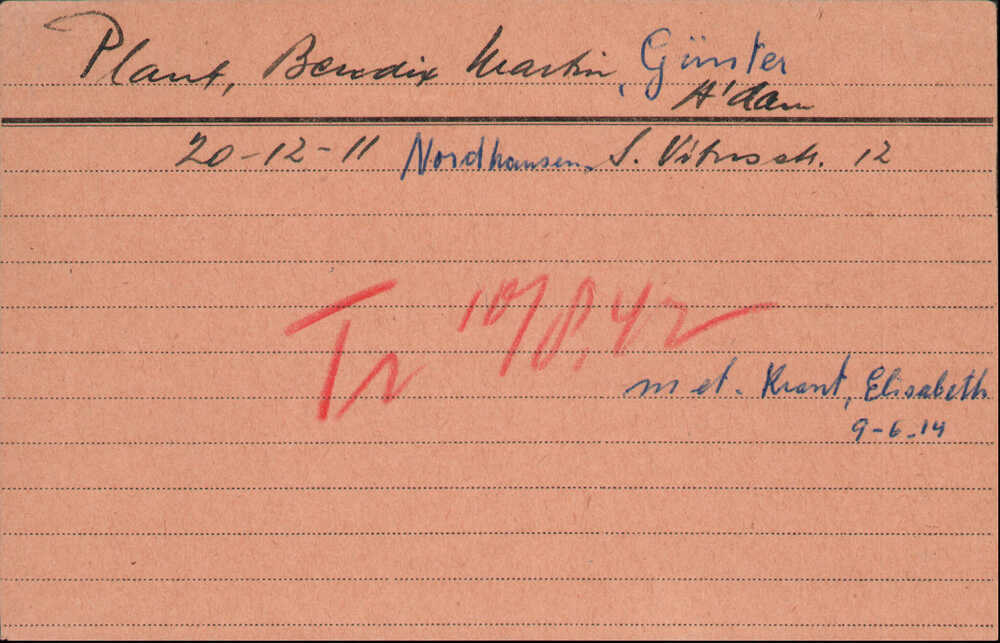 Plaut, Bendix Martin, Günter
A'dam
20-12-11 Nordhausen. S. Vitusstr. 12
Tr 10/8.42
met. Kraut, Elisabeth
9-6-14